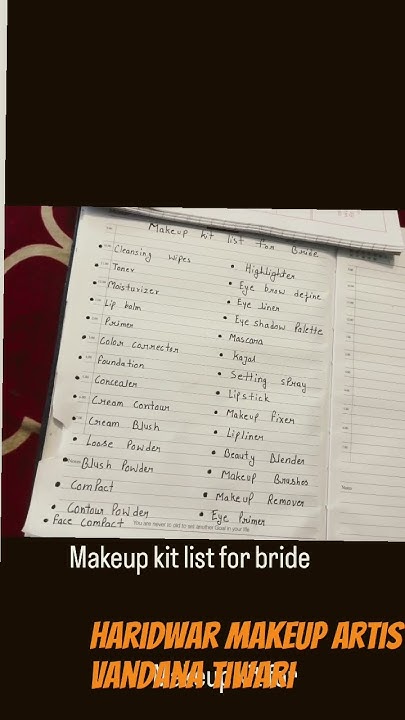 Makeup kit list for Bride
Cleansing wipes
Toner
Moisturizer
Lip balm
Primer
Color corrector
Foundation
Concealer
Cream contour
Cream Blush
Loose Powder
Blush Powder
Compact
Contour Powder
Face compact
Highlighter
Eye brow define
Eye liner
Eye shadow Palette
Mascara
Kajal
Setting spray
Lipstick
Makeup Fixer
Lipliner
Beauty Blender
Makeup Brushes
Makeup Remover
Eye Primer
You are never to old to set another Goal in your life
Makeup kit list for bride
HARIDWAR MAKEUP ARTIS
VANDANA TIWARI